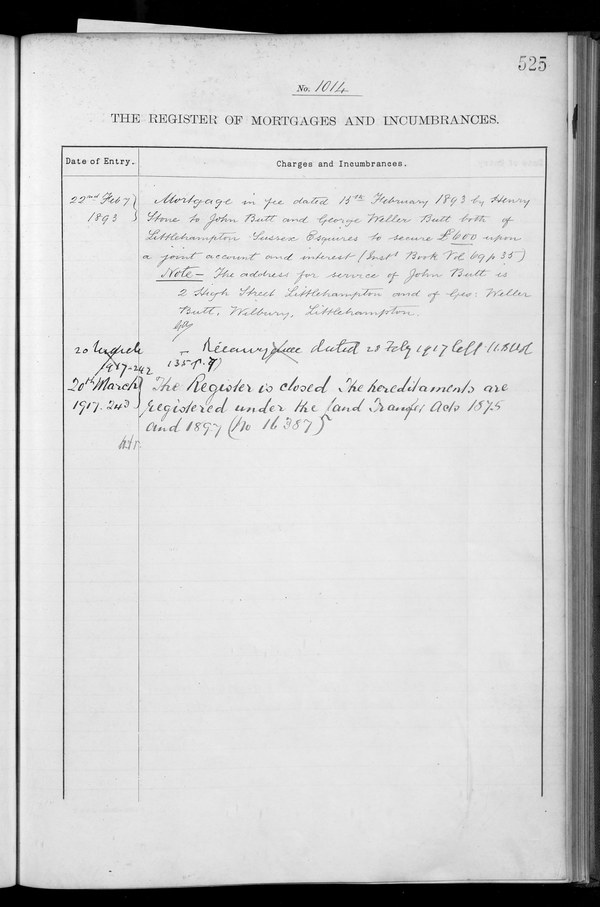 525
No. 1014
THE REGISTER OF MORTGAGES AND INCUMBRANCES.
Date of Entry.
Charges and Incumbrances.
22nd Feby
1893
Mortgage in fee dated 15th February 1893 by Henry
Stone to John Butt and George Weller Butt both of
Littlehampton Sussex Esquires to secure £600 upon
a joint account and interest (Inst Book Vol 69 p 35)
Note - The address for service of John Butt is
2 High Street Littlehampton and of Geo: Weller
Butt, Wilbury, Littlehampton.
20
1917-242
dated 20 Feby 1917
135 p. 7)
20th March
1917. 243
The Register is closed The hereditaments are
registered under the Land Transfer Acts 1875
and 1897 (No 16387)